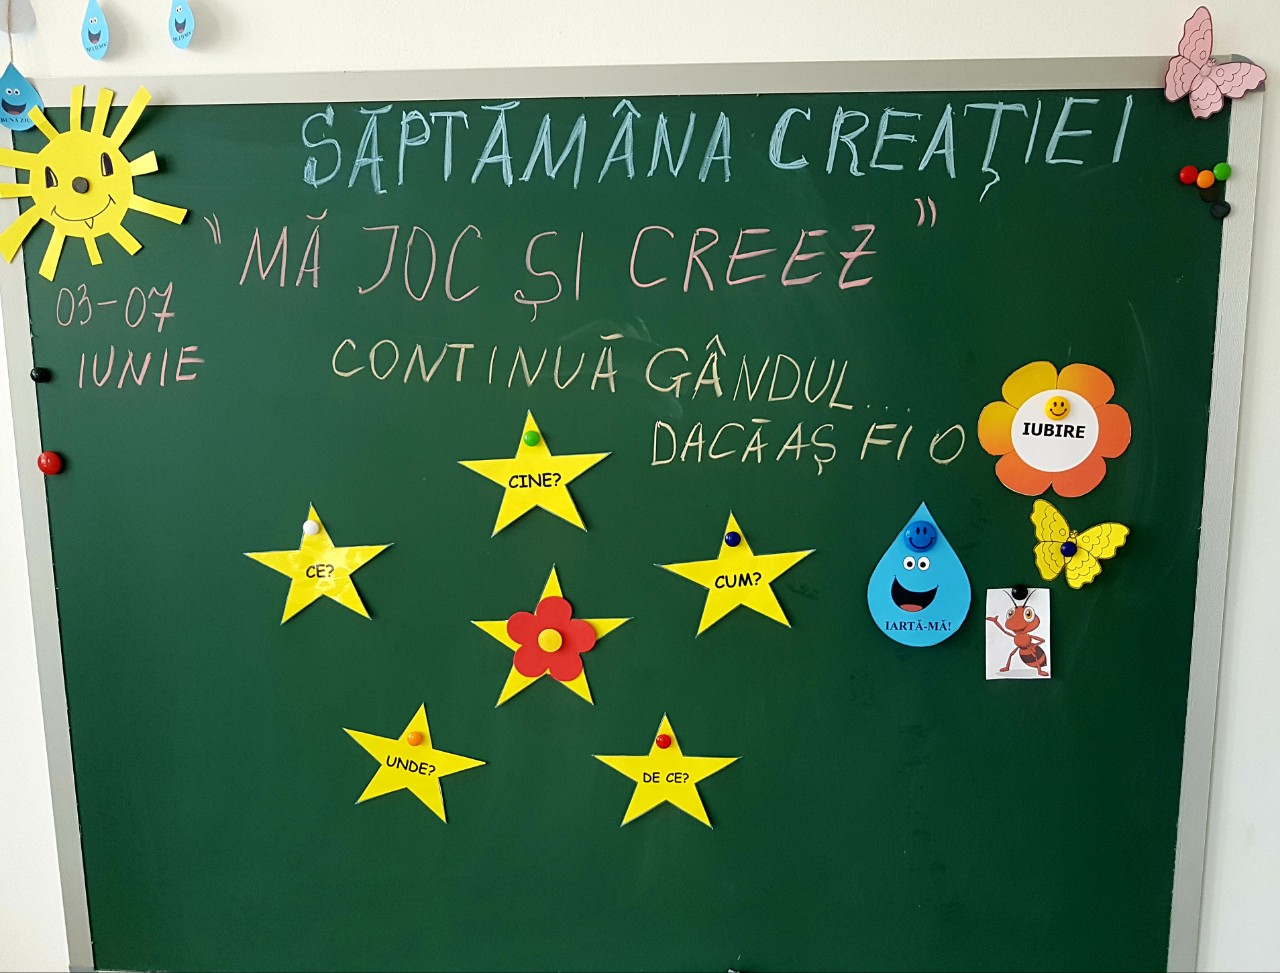 BUNĂ ZIUA
SĂPTĂMÂNA CREAŢIEI
"MĂ JOC ŞI CREEZ"
03-07
IUNIE
CONTINUĂ GÂNDUL...
DACĂ AŞ FI O
IUBIRE
CINE?
CE?
CUM?
IARTĂ-MĂ!
UNDE?
DE CE?